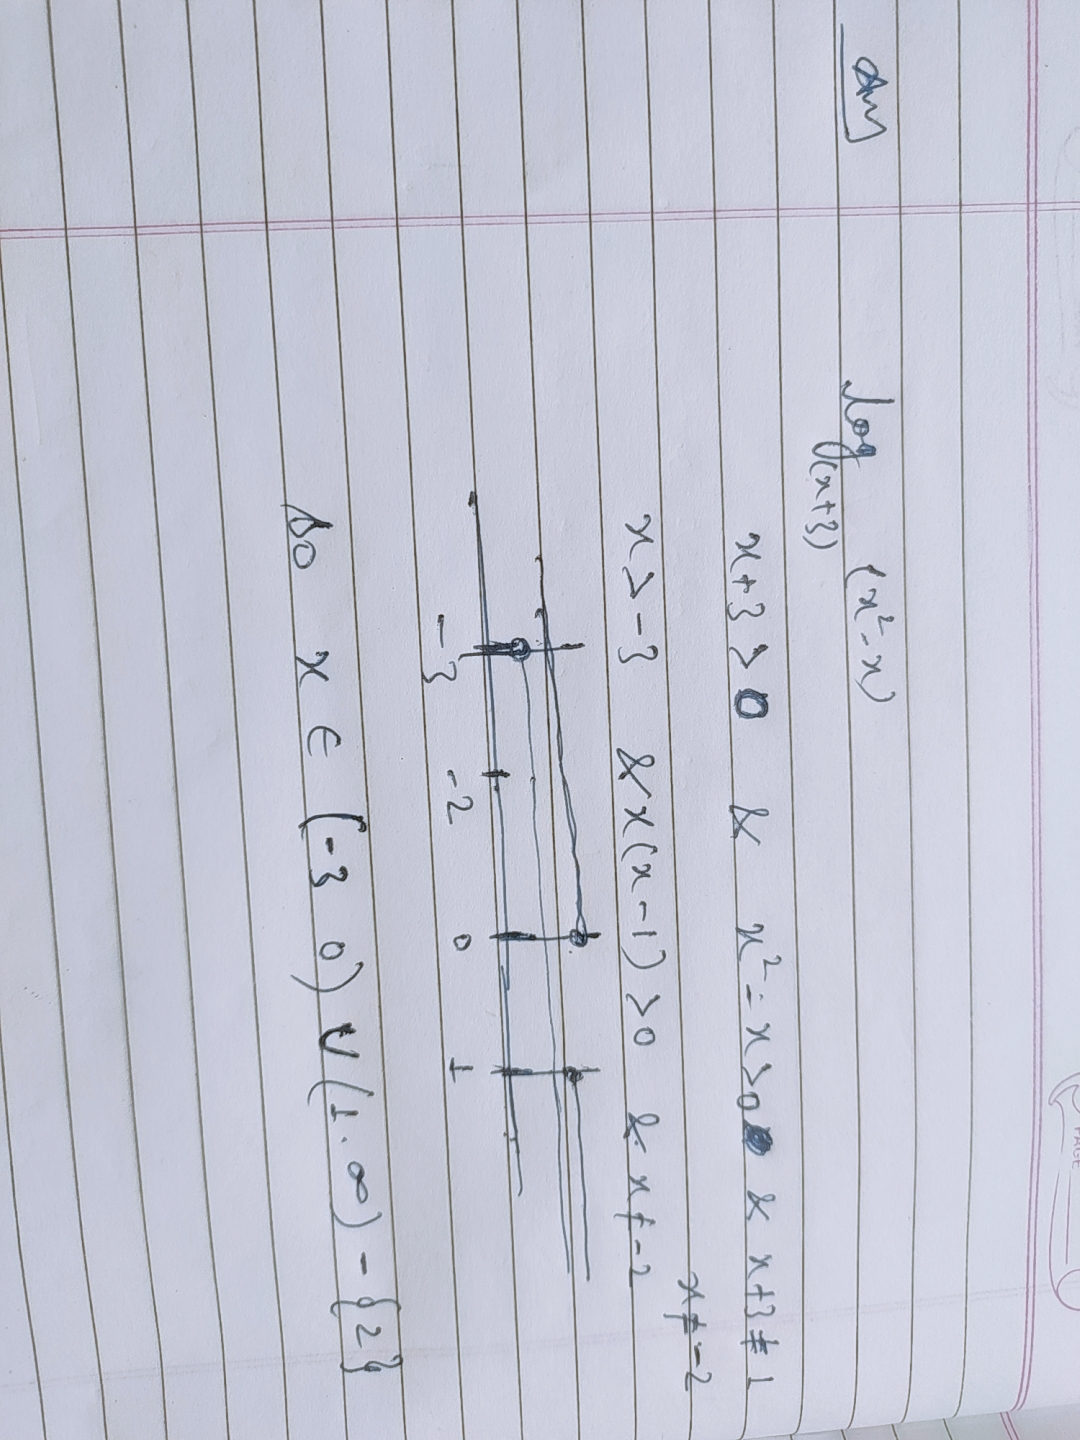 Ans
log(x+3) (x²-x)
x+3>0 & x²-x>0 & x+3≠1
x≠-2
x>-3 & x(x-1)>0 & x≠-2
-3 -2 0 1
So x ∈ (-3 0) ∪ (1.∞) - {2}
PAGE